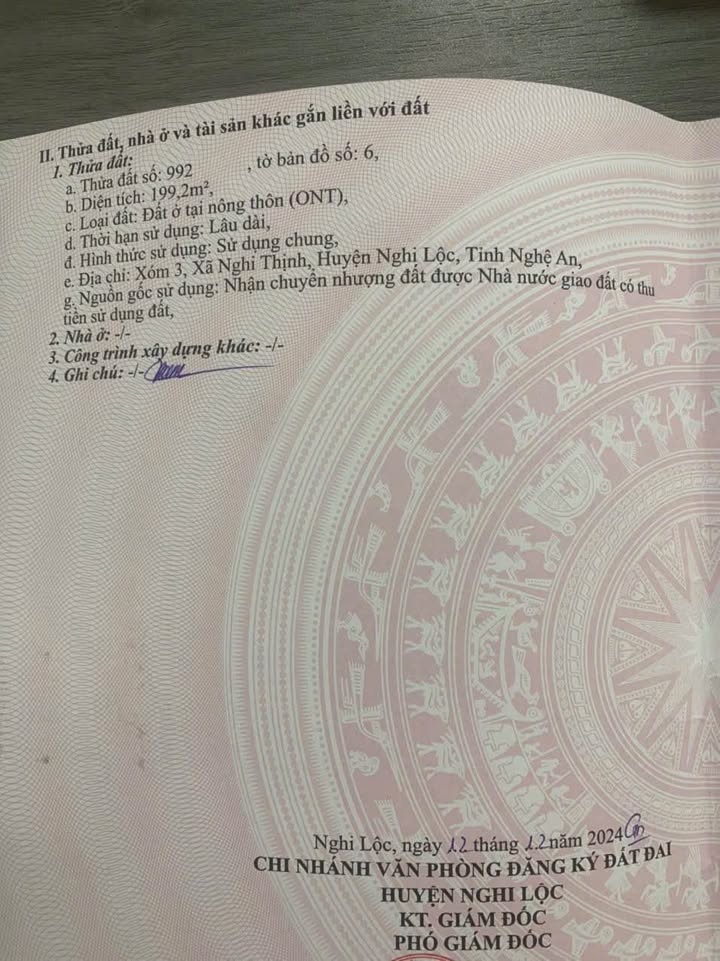 II. Thửa đất, nhà ở và tài sản khác gắn liền với đất
1. Thửa đất:
a. Thửa đất số: 992 , tờ bản đồ số: 6,
b. Diện tích: 199,2m²,
c. Loại đất: Đất ở tại nông thôn (ONT),
d. Thời hạn sử dụng: Lâu dài,
đ. Hình thức sử dụng: Sử dụng chung,
e. Địa chỉ: Xóm 3, Xã Nghi Thịnh, Huyện Nghi Lộc, Tỉnh Nghệ An,
g. Nguồn gốc sử dụng: Nhận chuyển nhượng đất được Nhà nước giao đất có thu
tiền sử dụng đất,
2. Nhà ở: -/-
3. Công trình xây dựng khác: -/-
4. Ghi chú: -/-
Nghi Lộc, ngày 12 tháng 12 năm 2024
CHI NHÁNH VĂN PHÒNG ĐĂNG KÝ ĐẤT ĐAI
HUYỆN NGHI LỘC
KT. GIÁM ĐỐC
PHÓ GIÁM ĐỐC